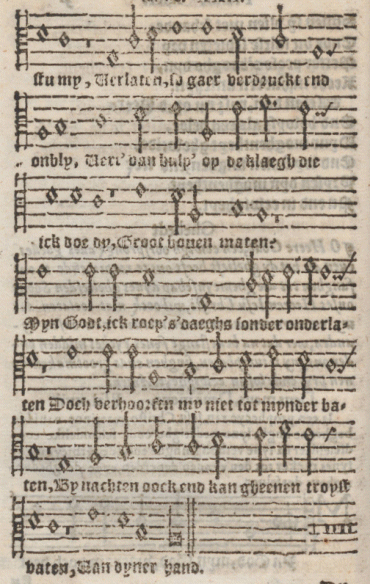 stu my, Verlaten, so gaer verdruckt end
onbly, Verr' van hulp' op de klaegh die
ick doe dy, Groot boven maten:
Myn Godt, ick roep's'daeghs sonder onderla-
ten Doch verhoort en my niet tot mynder ba-
ten, By nachten oock end kan gheenen troost
vaten, Van dyner hand.